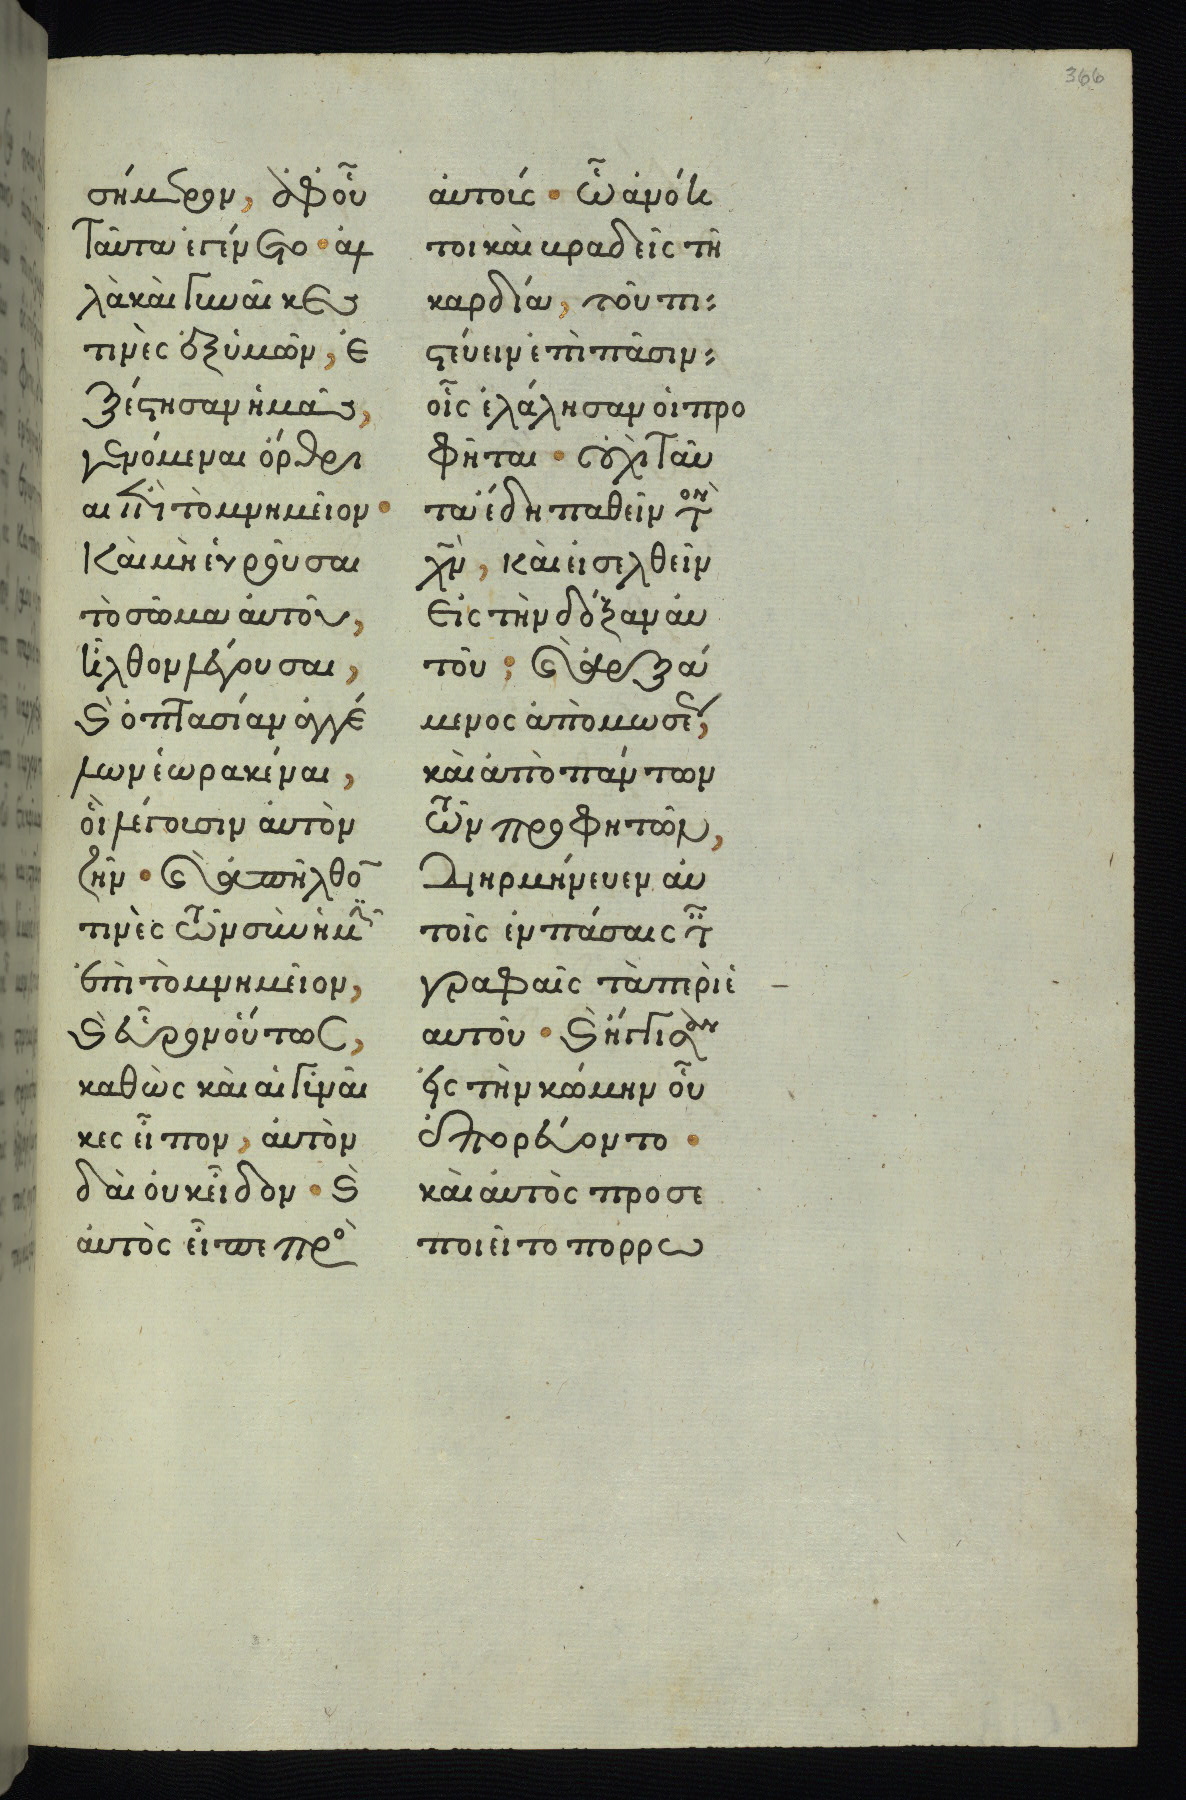 366
σήμερον, ἀφ' οὗ
ταῦτα ἐγένετο · ἀλ
λὰ καὶ γυναῖκές
τινες ἐξ ἡμῶν, ἐ
ξέστησαν ἡμᾶς,
γενόμεναι ὄρθρι
αι ἐπὶ τὸ μνημεῖον ·
Καὶ μὴ εὑροῦσαι
τὸ σῶμα αὐτοῦ,
ἦλθον λέγουσαι,
καὶ ὀπτασίαν ἀγγέ
λων ἑωρακέναι,
οἳ λέγουσιν αὐτὸν
ζῆν · καὶ ἀπῆλθό
τινες τῶν σὺν ἡμῖ
ἐπὶ τὸ μνημεῖον,
καὶ εὗρον οὕτως,
καθὼς καὶ αἱ γυναῖ
κες εἶπον, αὐτὸν
δὲ οὐκ εἶδον · καὶ
αὐτὸς εἶπε πρὸ
αὐτούς · ὦ ἀνόη
τοι καὶ βραδεῖς τῇ
καρδίᾳ, τοῦ πι
στεύειν ἐπὶ πᾶσιν
οἷς ἐλάλησαν οἱ προ
φῆται · οὐχὶ ταῦ
τα ἔδει παθεῖν τὸν
χν, καὶ εἰσελθεῖν
εἰς τὴν δόξαν αὐ
τοῦ; καὶ ἀρξά
μενος ἀπὸ μωσέως,
καὶ ἀπὸ πάντων
τῶν προφητῶν,
διηρμήνευεν αὐ
τοῖς ἐν πάσαις τ
γραφαῖς τὰ περὶ ἑ
αυτοῦ · καὶ ἤγγισαν
εἰς τὴν κώμην οὗ
ἐπορεύοντο ·
καὶ αὐτὸς προσε
ποιεῖτο πορρω